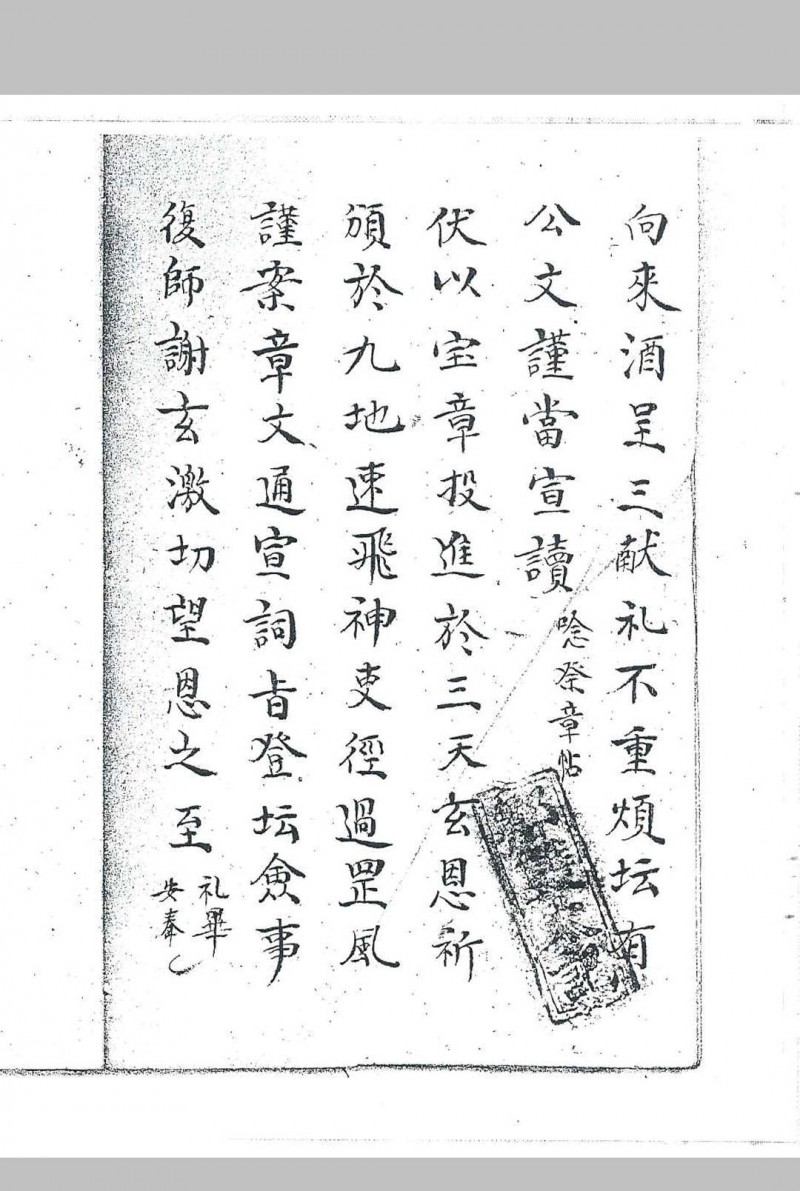 向來酒呈三献礼不重煩坛有
公文謹當宣讀 唸祭章帖
伏以宝章投進於三天玄恩祈
頒於九地速飛神吏徑過罡風
謹案章文通宣詞旨登坛僉事
復師謝玄激切望恩之至 礼畢
安奉